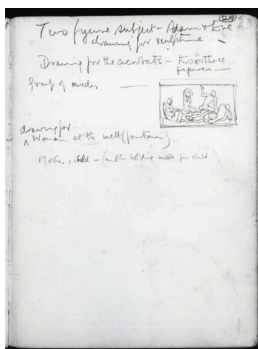 Two figure subject - Adam & Eve
drawing for sculpture
Drawing for the acrobats - two or three
figures
Group of nudes
drawing for
Woman at the well (fountain)
Mother, child - (mother holding nipple for child